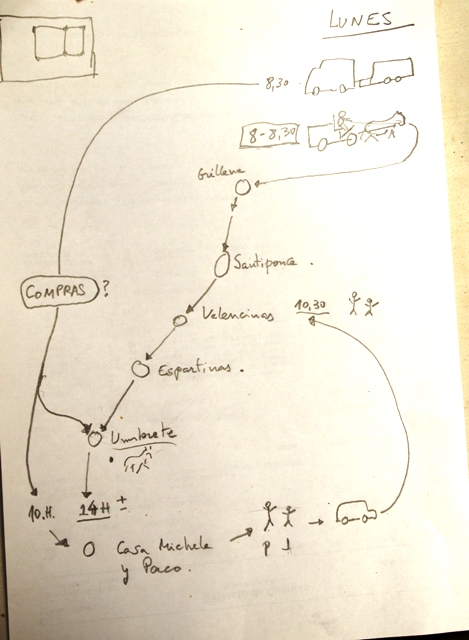 LUNES
8,30
8-8,30
Guillena
Santiponce.
COMPRAS ?
Valencinas 10,30
Espartinas.
Umbrete
10.H. 14H ±
Casa Michele
y Paco.
P J